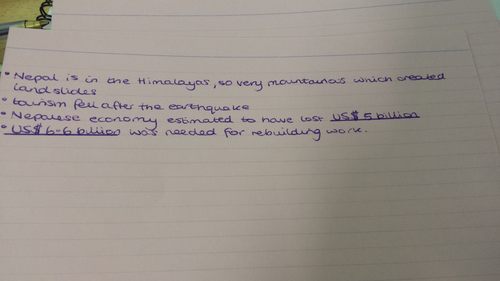 • Nepal is in the Himalayas, so very mountainous which created
landslides
• tourism fell after the earthquake
• Nepalese economy estimated to have lost US$ 5 billion
• US$ 6-6 billion was needed for rebuilding work.